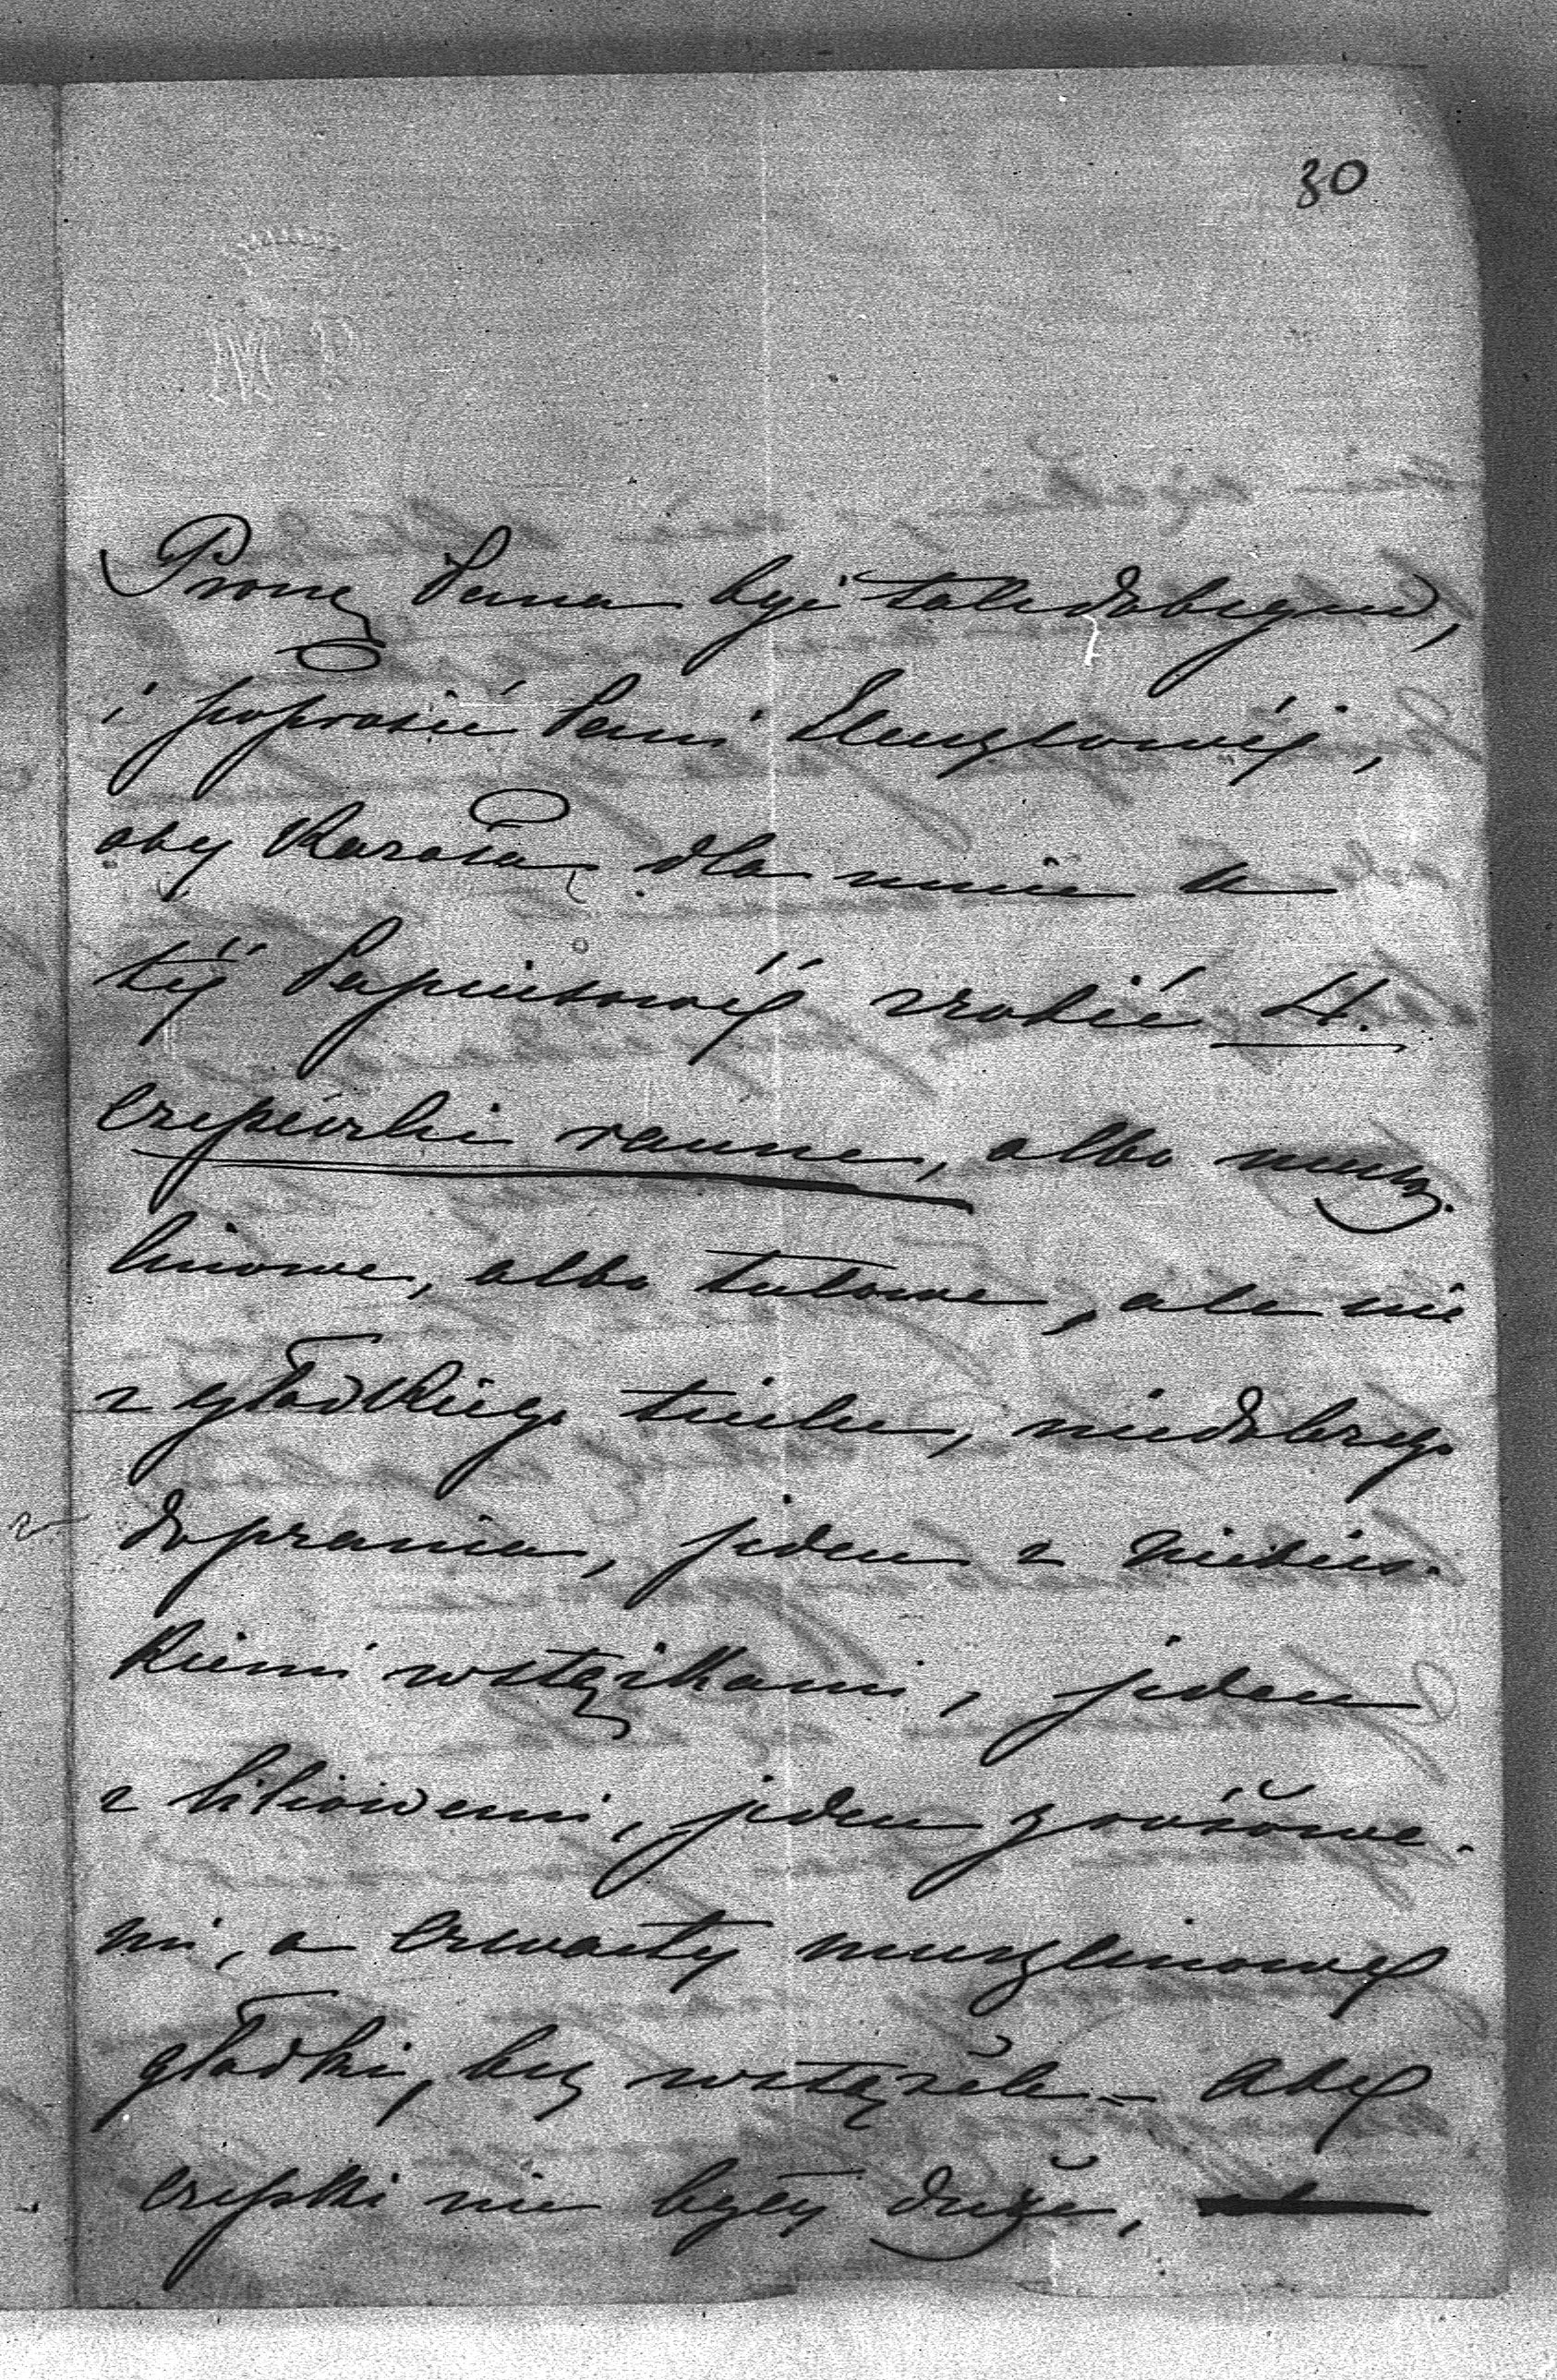 30
Proszę Pana być tak dobrym,
i poprosić Pani
aby kazała dla mnie u
téj zrobić 4.
czepeczki ranne, albo musz-
linowe, albo tulowe, ale nie
z gładkiego tiulu, niedobrego
do prania, jeden z niebies-
kiemi wstążkami, jeden
z liliowemi, jeden z różowe-
mi, a czwarty muszlinowy
gładki, bez wstążek – Aby
czepki nie były duże,